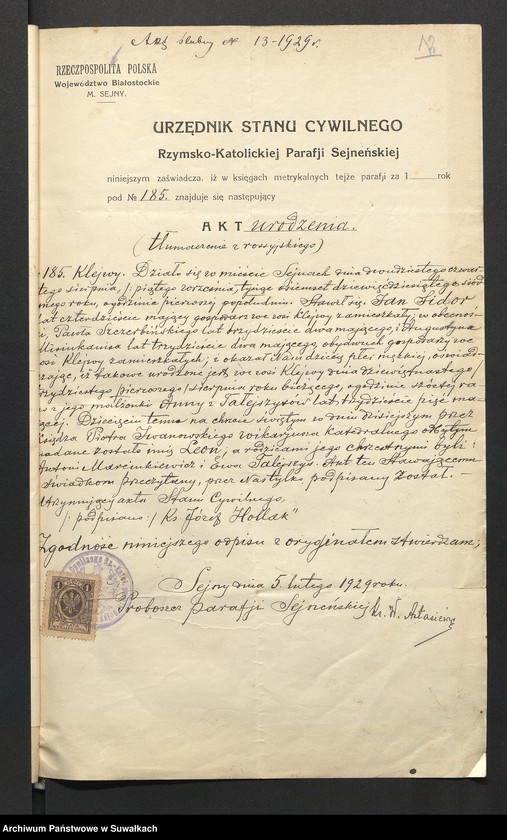 Akt ślubny № 13-1929r.
RZECZPOSPOLITA POLSKA
Województwo Białostockie
M. SEJNY.
URZĘDNIK STANU CYWILNEGO
Rzymsko-Katolickiej Parafji Sejneńskiej
niniejszym zaświadcza, iż w księgach metrykalnych tejże parafji za 1 rok
pod № 185. znajduje się następujący
AKT urodzenia.
(tłumaczenie z rossyjskiego)
185. Klejwy. Działo się w mieście Sejnach dnia dwudziestego czwar-
tego sierpnia, /: piątego września, tysiąc osiemset dziewięćdziesiątego siód-
mego roku, o godzinie pierwszej popołudniu. Stawił się Jan Sidor
lat czterdzieście mający gospodarz we wsi Klejwy zamieszkały, w obecnoś-
i, Pawła Szczerbińskiego lat trzydzieście dwa mającego, i Augustyna
lat trzydzieście dwa mającego, obydwuch gospodarzy we
wsi Klejwy zamieszkałych; i okazał Nam dziécię płci męzkiej, oświad-
czając, iż takowe urodzone jest we wsi Klejwy dnia dziewiętnastego /
trzydziestego pierwszego / sierpnia roku bieżącego, o godzinie szóstej ra-
no z jego małżonki Anny z Talejszysów lat trzydzieście pięć ma-
jącej. Dziecięciu temu na chrzcie świętym w dniu dzisiejszym przez
księdza Piotra Iwanowskiego wikarjusza Katedralnego odbytym
nadane zostało imię Leon, a rodzicami jego chrzestnymi byli:
Antoni Marcinkiewicz i Ewa Talejszys. Akt ten stawającemu
świadkom przeczytany, przez Nas tylko podpisany został. -
Utrzymujący akta Stanu Cywilnego,
/: podpisano :/ Ks. Józef
Zgodność niniejszego odpisu z oryginałem stwierdzam;
Sejny dnia 5. lutego 1929 roku.
Proboszcz parafji Sejneńskiej Ks. W.
Archiwum Państwowe w Suwałkach